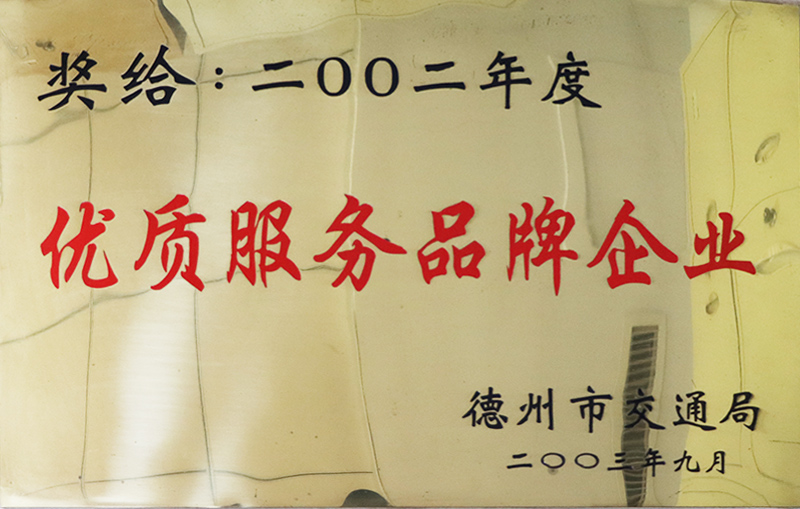 奖给：二OO二年度
优质服务品牌企业
德州市交通局
二OO三年九月